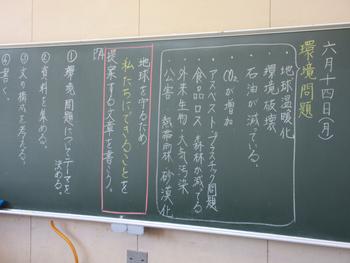 六月十四日(月)
環境問題
地球温暖化
環境破壊
・石油が減っている。
・CO₂が増加
・アスベスト・プラスチック問題
・食品ロス・森林が減ってる
・外来生物・大気汚染
・公害・熱帯雨林・砂漠化
地球を守るため
私たちにできることを
提案する文章を書こう。
① 環境問題についてテーマを決める。
② 資料を集める。
③ 文の構成を考える。
④ 書く。